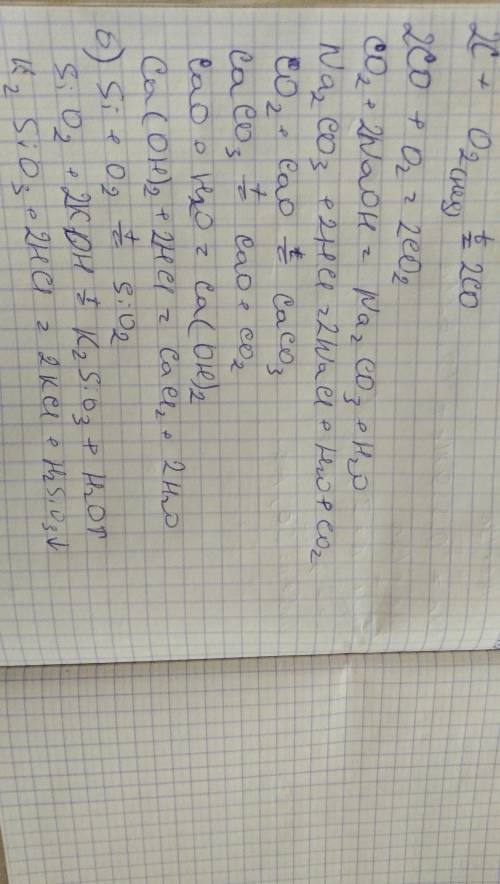 2C + O₂(нед) t= 2CO
2CO + O₂ = 2CO₂
CO₂ + 2NaOH = Na₂CO₃ + H₂O
Na₂CO₃ + 2HCl = 2NaCl + H₂O + CO₂
CO₂ + CaO t= CaCO₃
CaCO₃ t= CaO + CO₂
CaO + H₂O = Ca(OH)₂
Ca(OH)₂ + 2HCl = CaCl₂ + 2H₂O
б) Si + O₂ t= SiO₂
SiO₂ + 2KOH t= K₂SiO₃ + H₂O↑
K₂SiO₃ + 2HCl = 2KCl + H₂SiO₃↓